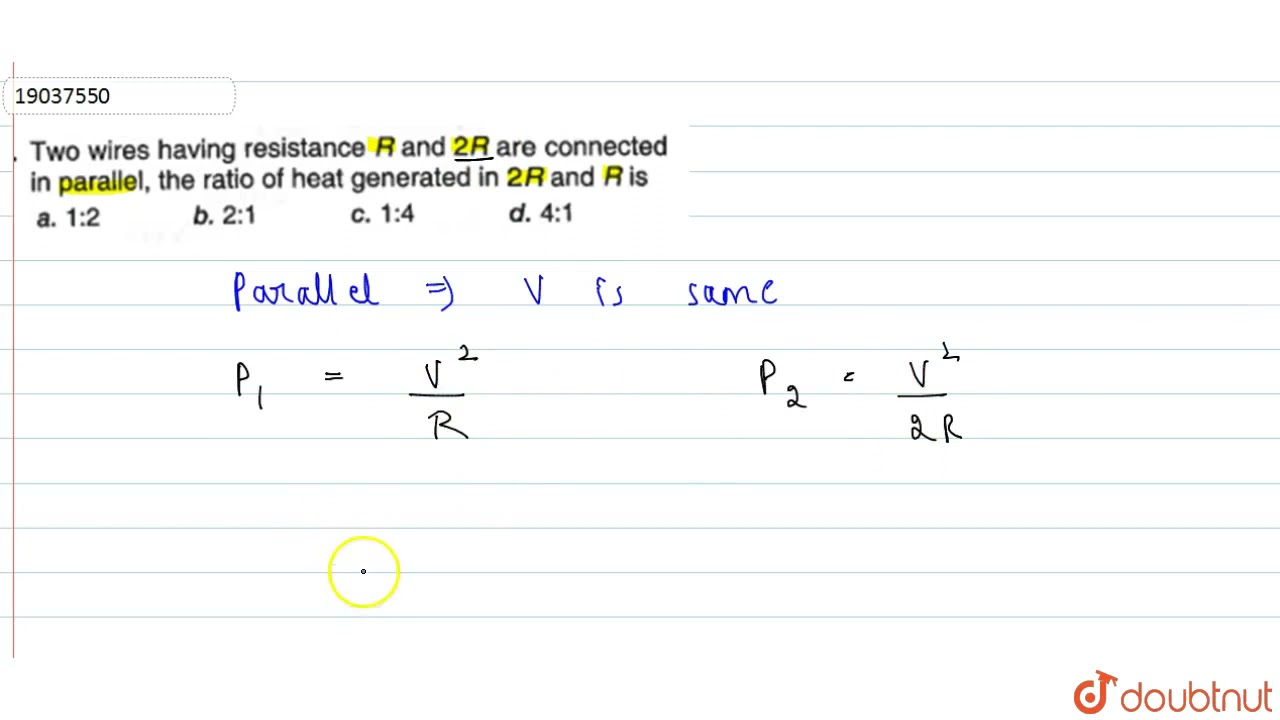 19037550
. Two wires having resistance R and 2R are connected
in parallel, the ratio of heat generated in 2R and R is
a. 1:2 b. 2:1 c. 1:4 d. 4:1
Parallel ⇒ V is same
P₁ = V²/R P₂ = V²/2R
doubtnut